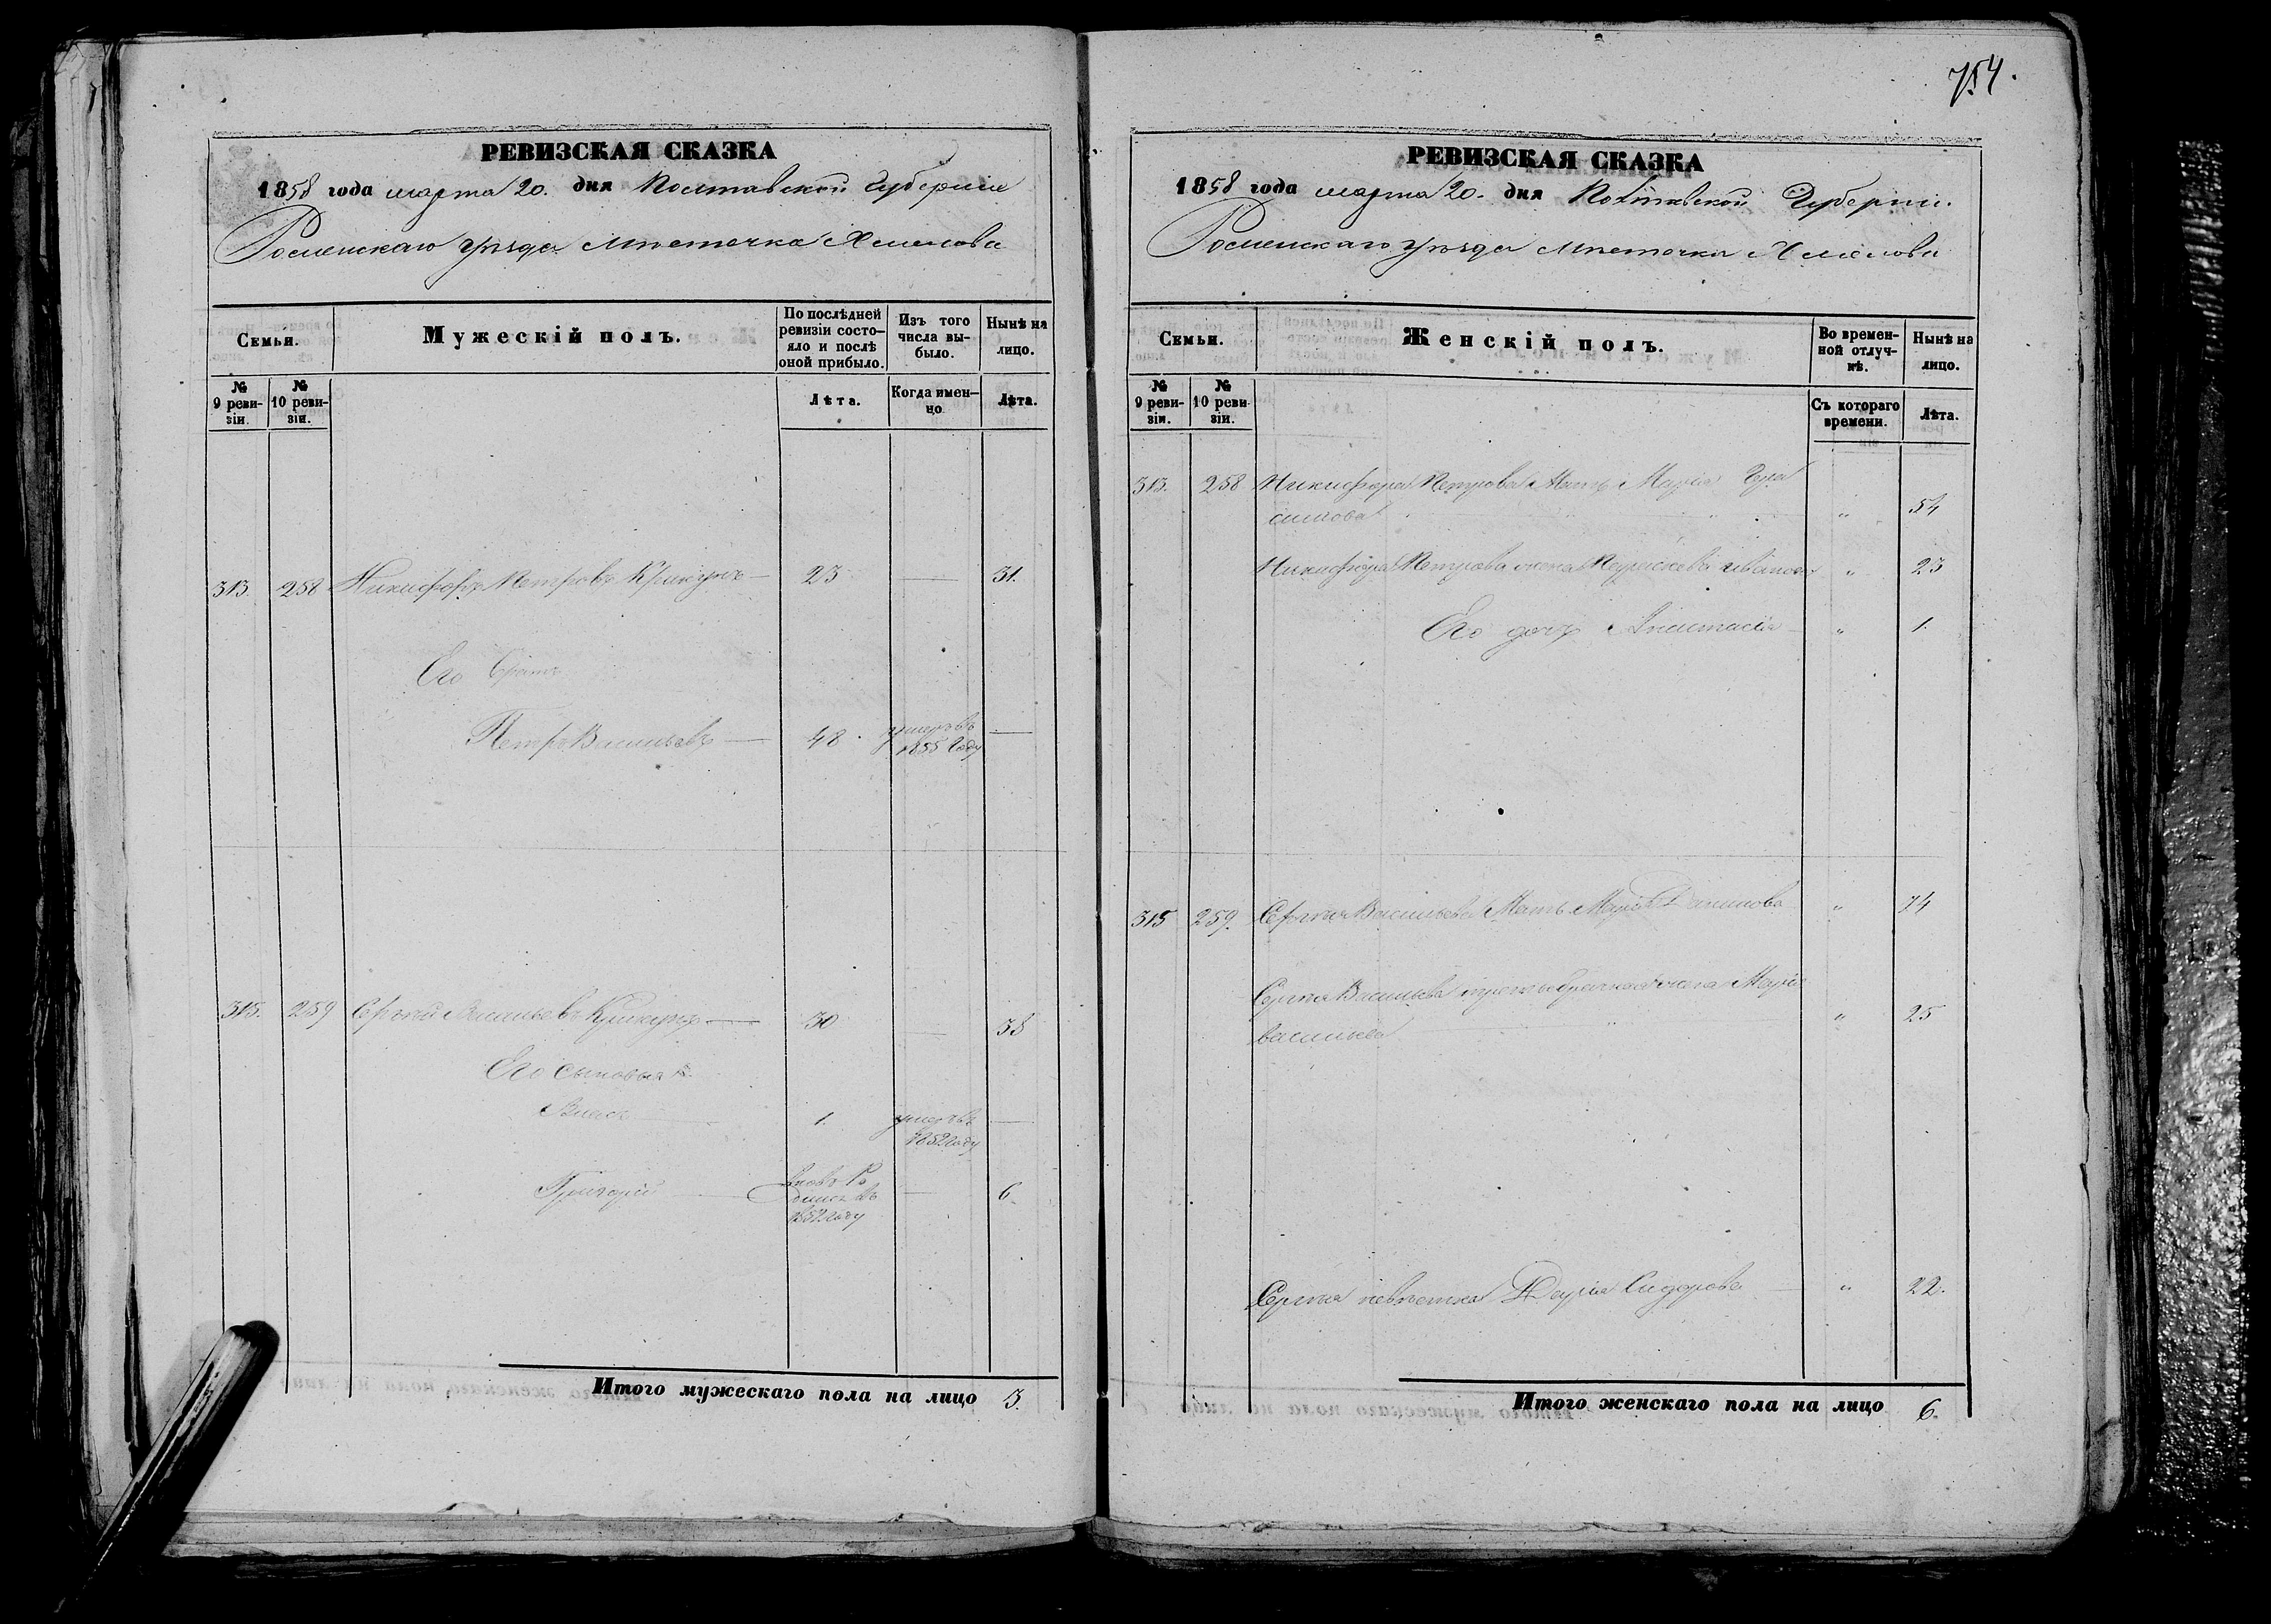 754.
РЕВИЗСКАЯ СКАЗКА
1858 года марта 20. дня Полтавской Губерніи
Роменскаго уѣзда мѣстечка Хмелова
Семьи.
Мужескій полъ.
По послѣдней ревизіи состо-
яло и послѣ оной прибыло.
Изъ того числа вы-
было.
Нынѣ на лицо.
№ 9 реви-
зіи.
№ 10 реви-
зіи.
Лѣта.
Когда имен-
но
Лѣта.
313. 258 Никифоръ Петровъ Крикунъ — 23 — 31.
Его братъ
Петръ Васильевъ — 48 умеръ въ 1855 году —
315. 259 Сергѣй Васильевъ Крикунъ — 30 — 38
Его сыновья
Власъ 1. умеръ въ 1852 году —
Григорій 1852 году — 6
Итого мужескаго пола на лицо 3.
РЕВИЗСКАЯ СКАЗКА
1858 года марта 20. дня Полтавской Губерніи.
Роменскаго уѣзда мѣстечка Хмелова
Семьи.
Женскій полъ.
Во времен-
ной отлуч-
кѣ.
Нынѣ на лицо.
№ 9 реви-
зіи.
№ 10 реви-
зіи.
Съ котораго времени.
Лѣта.
313. 258 Никифора Петрова Мать Марія Гера
симова " 54
Никифора Петрова жена Параскева Иванова " 23
Его дочь Анастасія " 1.
315 259. Сергѣя Васильева Мать Марія " 74
Сергѣя Васильева жена Марія
Васильева " 25
Сергѣя невѣстка Дарія Сидорова " 22.
Итого женскаго пола на лицо 6.